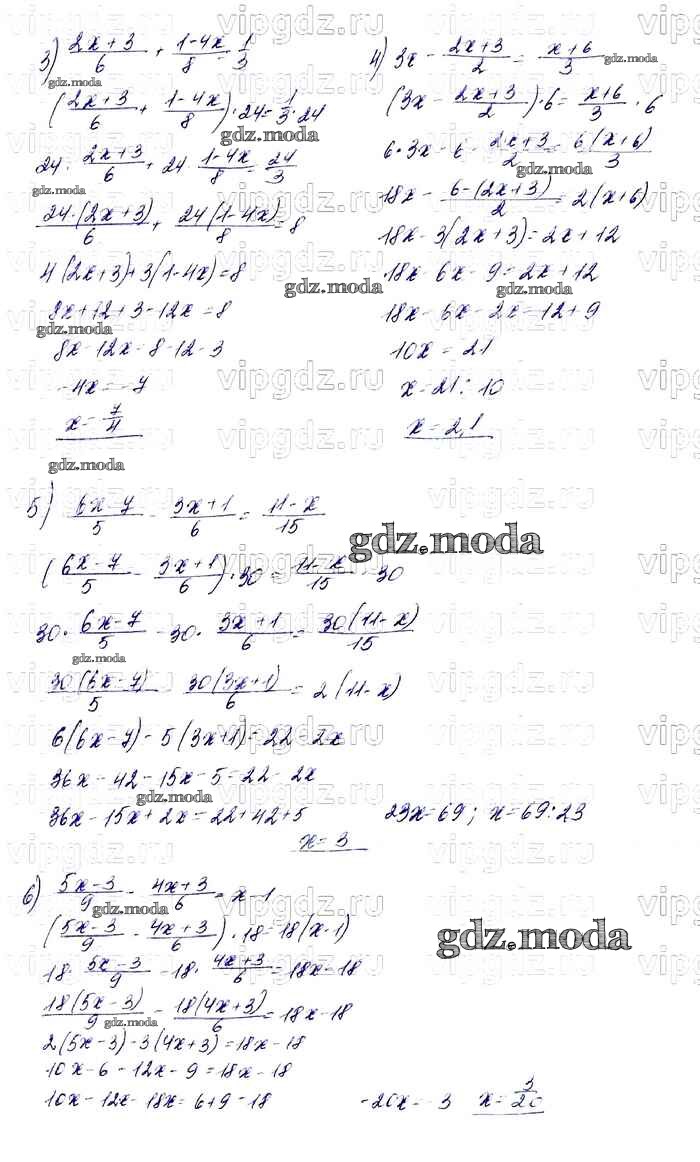 3) (2x+3)/6 + (1-4x)/8 = 1/3
((2x+3)/6 + (1-4x)/8)·24=1/3·24
24·(2x+3)/6 + 24·(1-4x)/8 = 24/3
24·(2x+3)/6 + 24(1-4x)/8 = 8
4(2x+3)+3(1-4x)=8
8x+12+3-12x=8
8x-12x=8-12-3
-4x=-7
x=7/4
4) 3x - (2x+3)/2 = (x+6)/3
(3x - (2x+3)/2)·6 = (x+6)/3 · 6
6·3x - 6 · (2x+3)/2 = 6(x+6)/3
18x - 6-(2x+3)/2 = 2(x+6)
18x-3(2x+3)=2x+12
18x-6x-9=2x+12
18x-6x-2x=12+9
10x=21
x=21:10
x=2,1
5) (6x-7)/5 - (3x+1)/6 = (11-x)/15
((6x-7)/5 - (3x+1)/6)·30 = (11-x)/15 · 30
30·(6x-7)/5 - 30·(3x+1)/6 = 30(11-x)/15
30(6x-7)/5 - 30(3x+1)/6 = 2(11-x)
6(6x-7)-5(3x+1)=22-2x
36x-42-15x-5=22-2x
36x-15x+2x=22+42+5 23x=69; x=69:23
x=3
6) (5x-3)/9 - (4x+3)/6 = x-1
((5x-3)/9 - (4x+3)/6)·18=18(x-1)
18·(5x-3)/9 - 18·(4x+3)/6 = 18x-18
18(5x-3)/9 - 18(4x+3)/6 = 18x-18
2(5x-3)-3(4x+3)=18x-18
10x-6-12x-9=18x-18
10x-12x-18x=6+9-18 -20x=-3 x=3/20
gdz.moda
vipgdz.ru